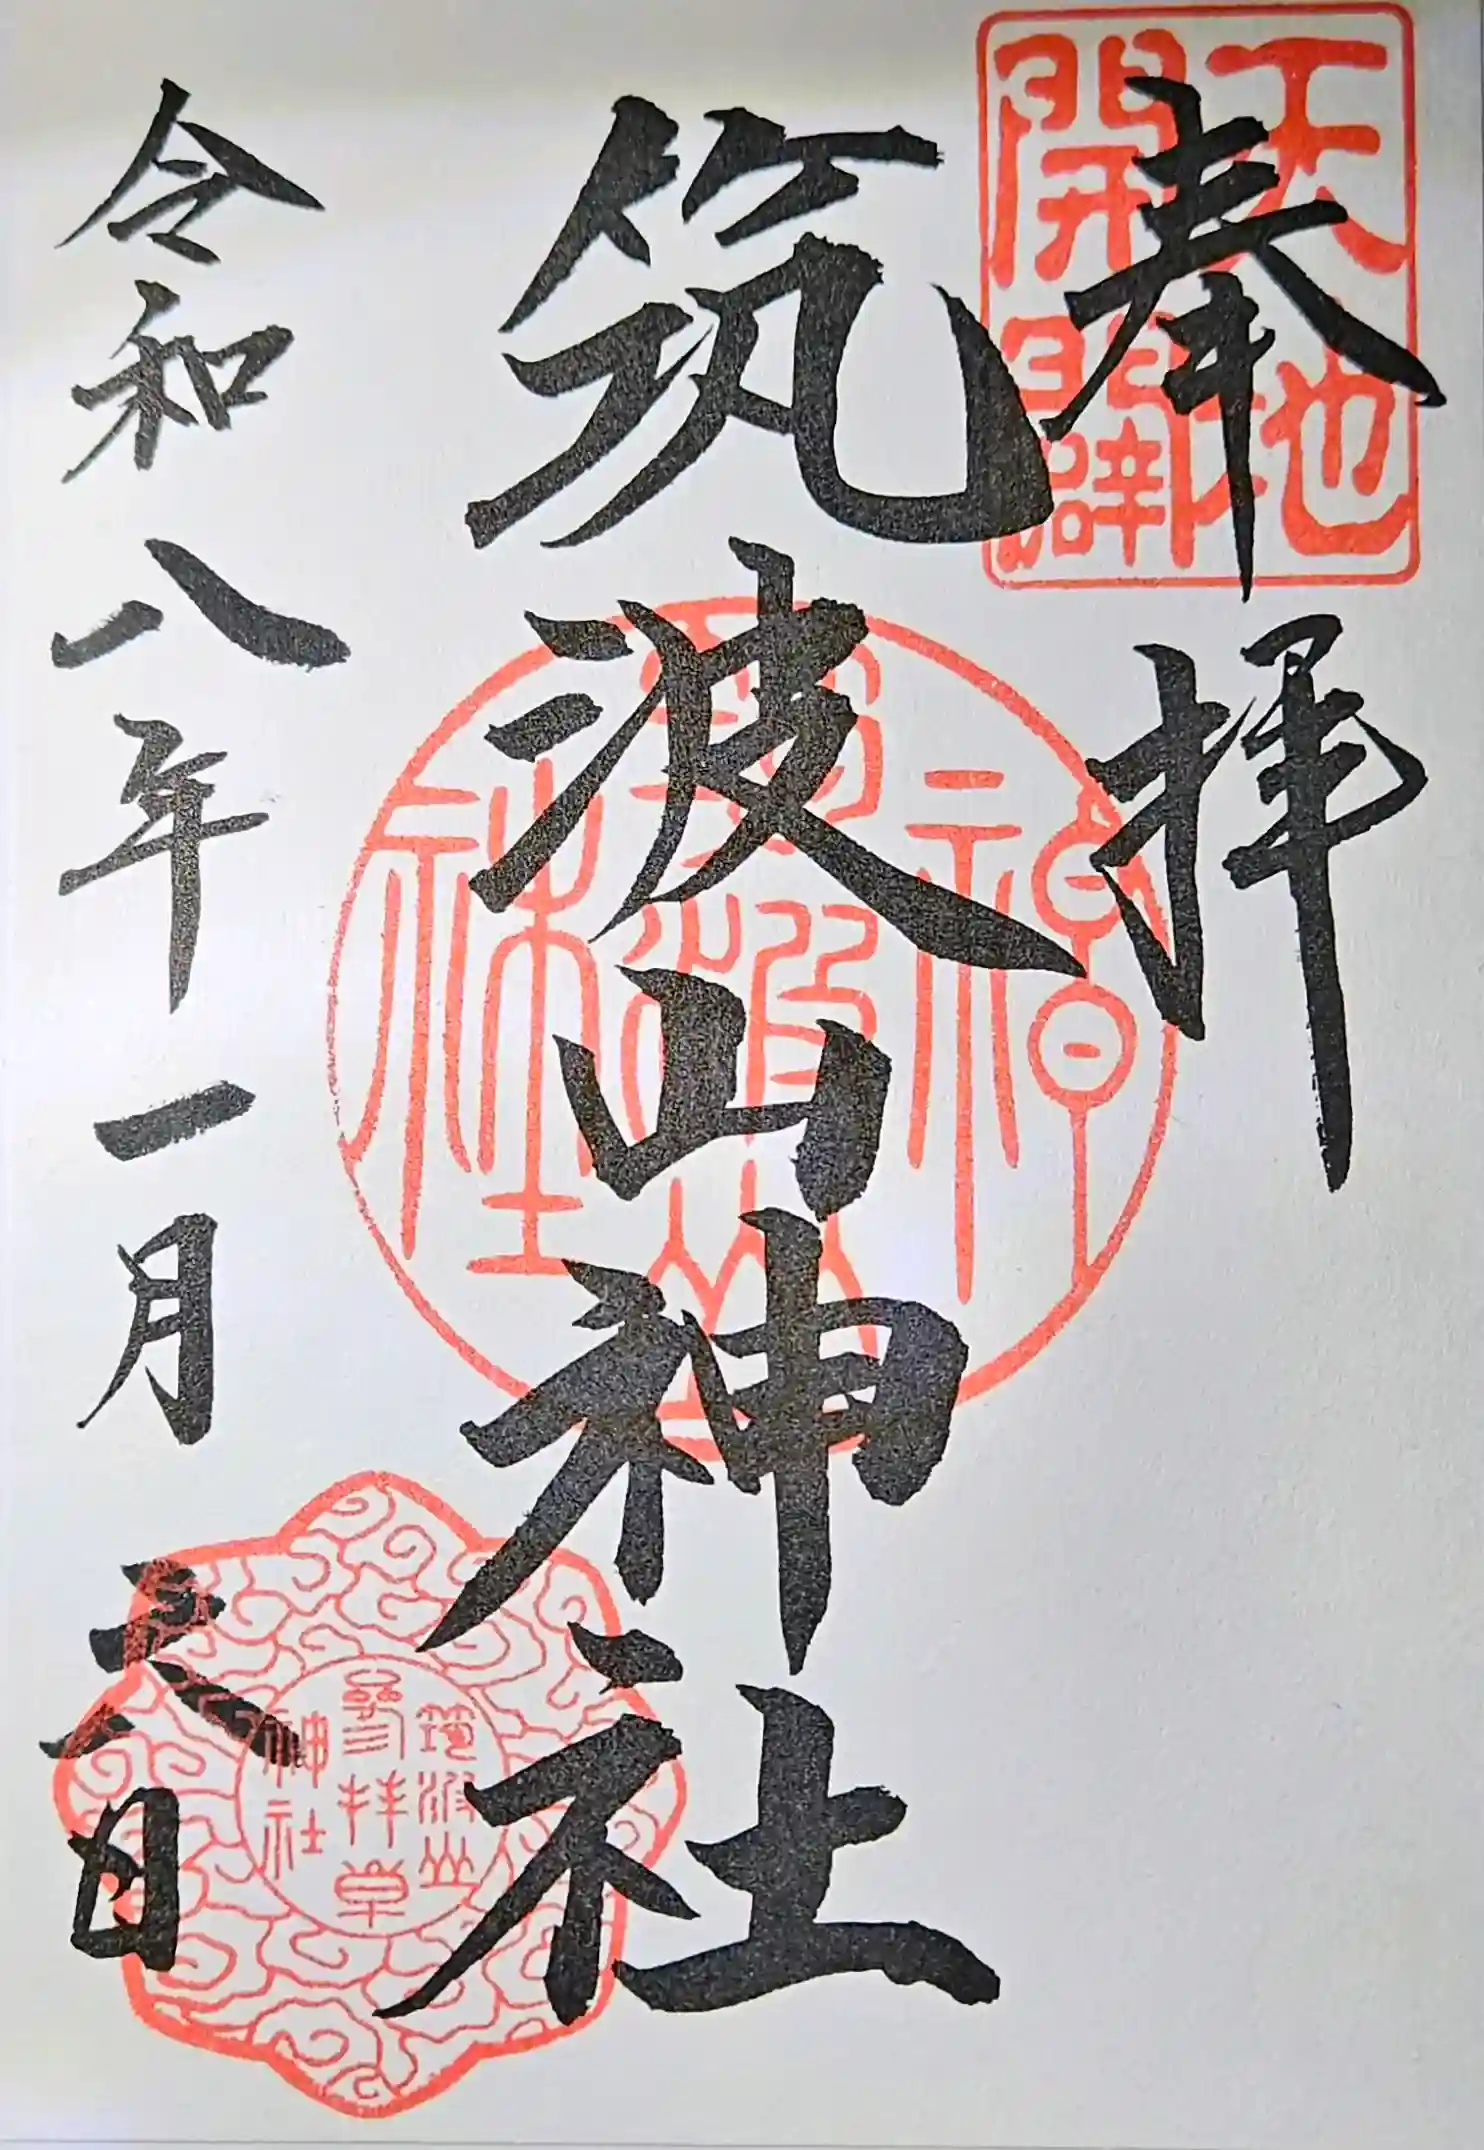 奉拝
天地
開闢
筑波山神社
神
筑波山
社
令和八年一月
日
筑波山
参拝章
神社